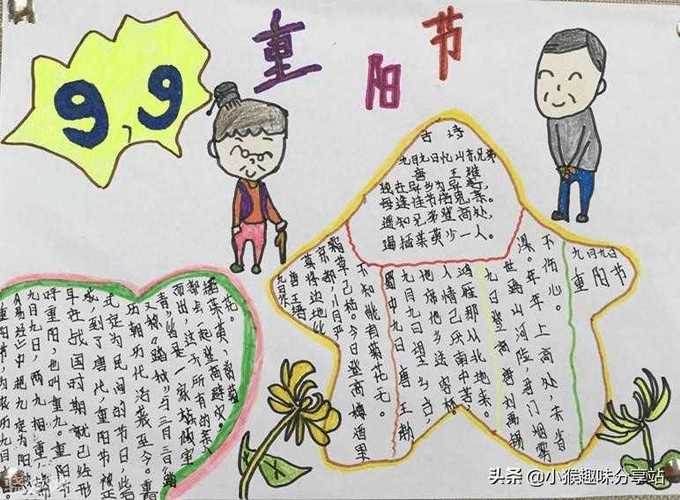 9,9
重阳节
古诗
九月九日忆山东兄弟
唐 王维
独在异乡为异客,
每逢佳节倍思亲。
遥知兄弟登高处,
遍插茱萸少一人。
九月九日
重阳节
不伤心。
年年上高处,未省
世路山河险,君门烟雾
九日登高 唐 刘禹锡
鸿雁那从北地来。
人情已厌南中苦
他席他乡送客杯
九月九日望乡台,
蜀中九日 唐 王勃
不知犹有菊花无。
今日登高樽酒里
霜草已枯。
插茱萸、
都要一起登高避灾
而出,这天所有的亲
是一家族倾室
又称"踏秋"与三月三日
历朝历代沿袭至今。重
式定为民间的节日,此
成,到了唐代,重阳节被正
年在战国时期就已经形
叫重阳,也叫重九,重阳节
九月九日,两九相重
易经中把九定为阳
农历的九月
头条 @小猴趣味分享站